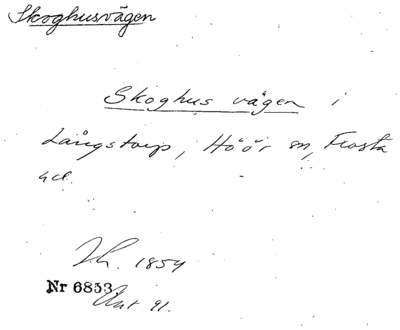 Skoghusvägen
Skoghus vägen i
Långstorp, Höör sn, Frosta
hd.
1854
Nr 6853
Ant 91.